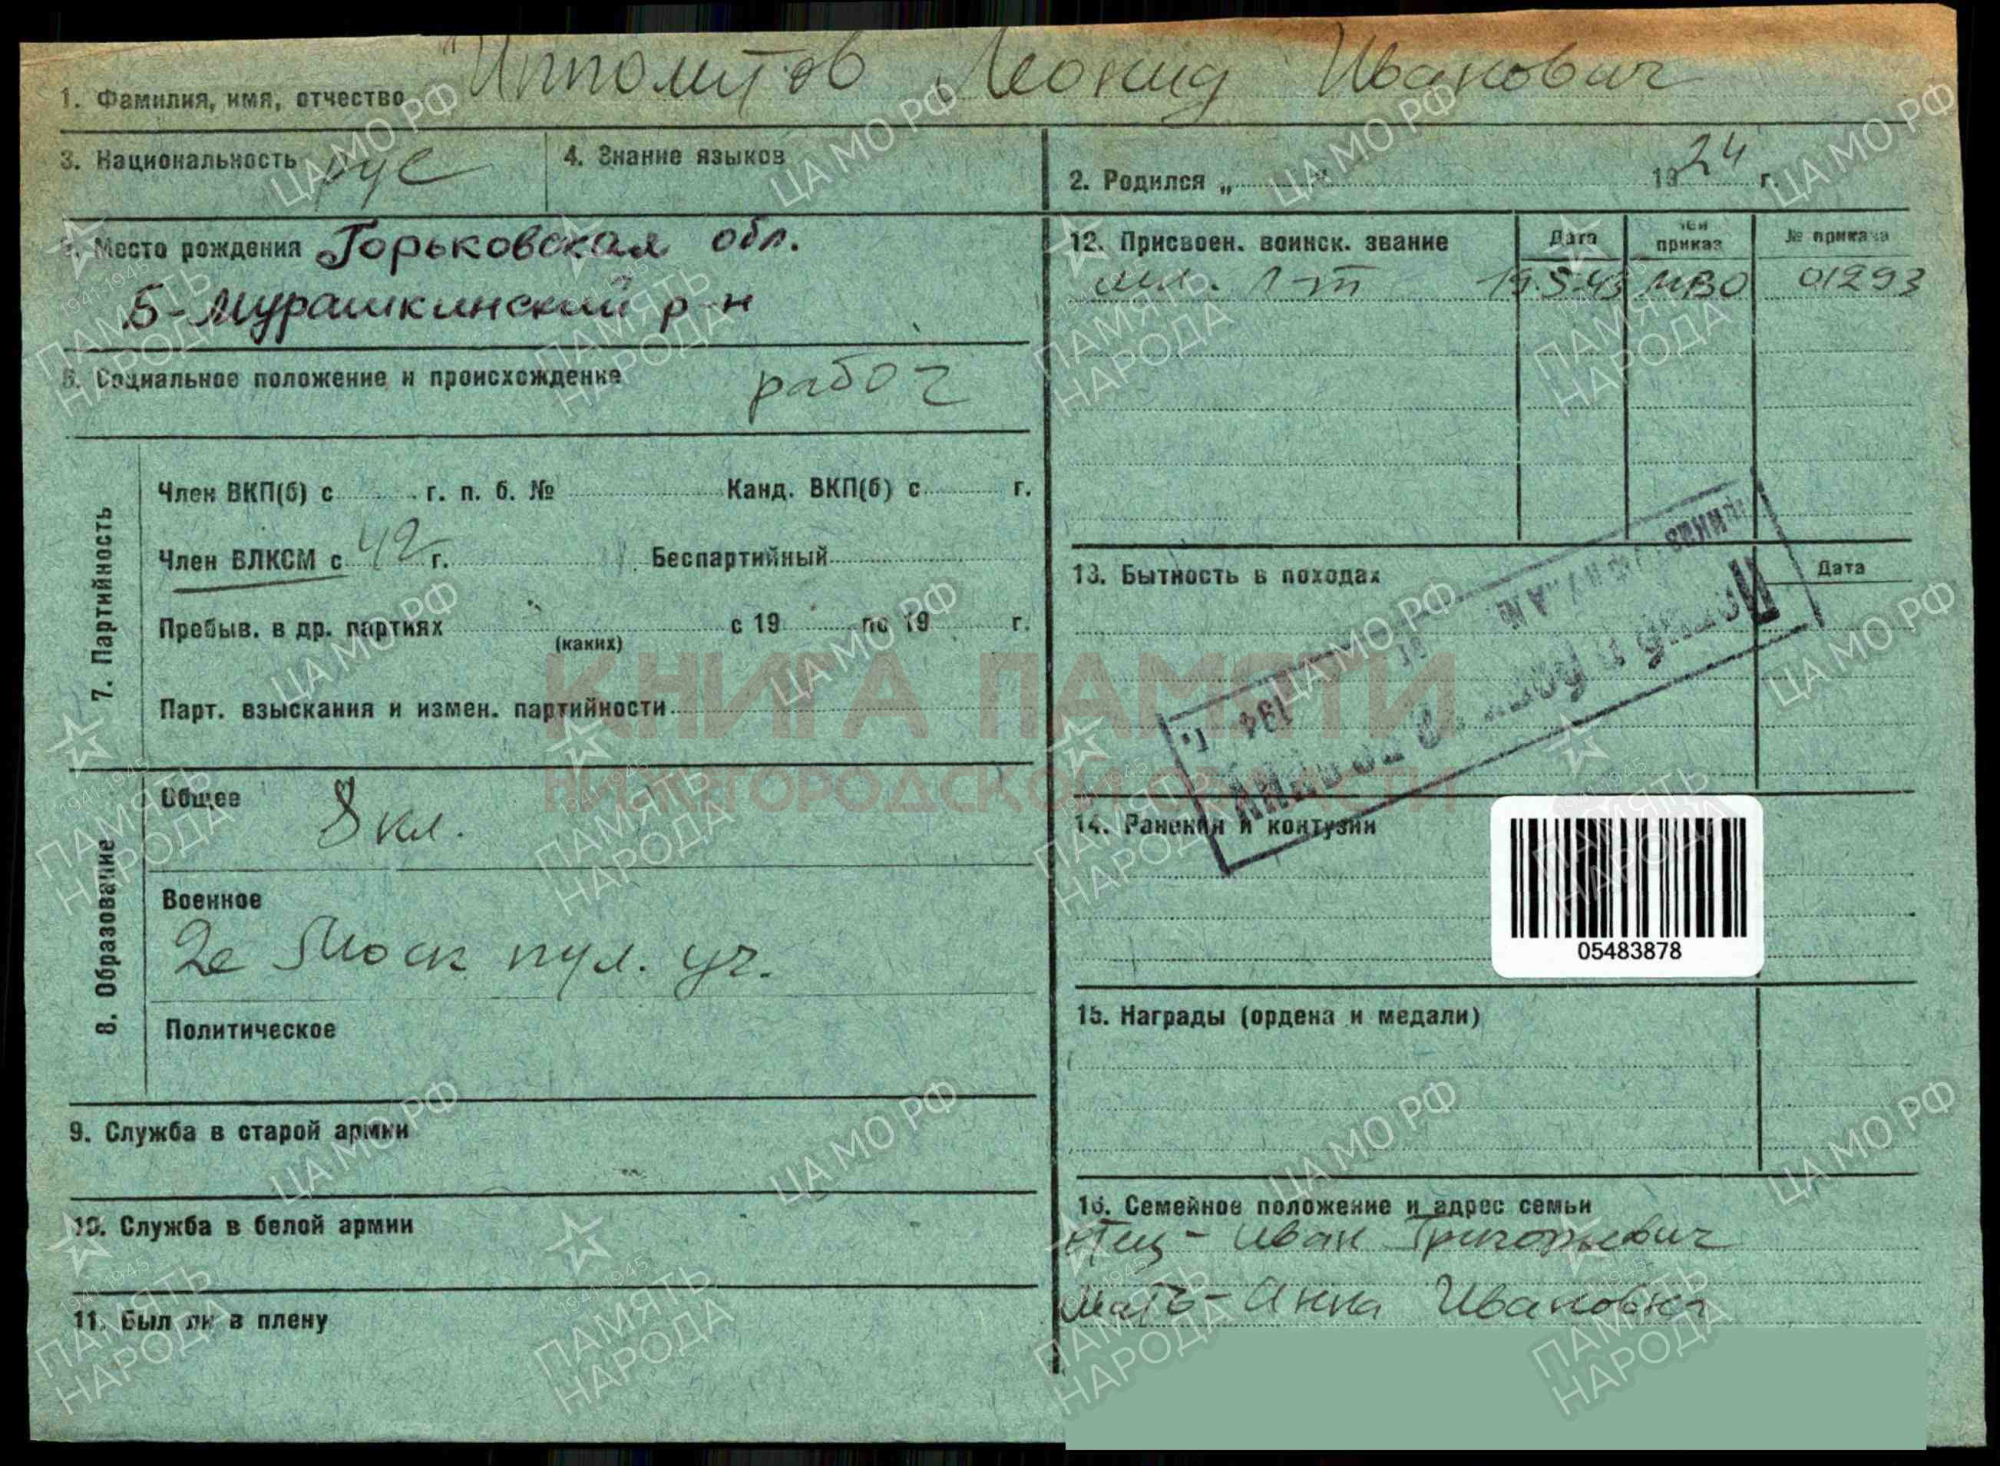 1. Фамилия, имя, отчество Ипполитов Леонид Иванович
3. Национальность рус
4. Знание языков
2. Родился „ “ 1924 г.
5. Место рождения Горьковская обл.
Б-Мурашкинский р-н
6. Социальное положение и происхождение рабоч
7. Партийность
Член ВКП(б) с г. п. б. № Канд. ВКП(б) с г.
Член ВЛКСМ с 42 г. Беспартийный
Пребыв. в др. партиях (каких) с 19 по 19 г.
Парт. взыскания и измен. партийности
8. Образование
Общее 8 кл.
Военное
2е Моск пул. уч.
Политическое
9. Служба в старой армии
10. Служба в белой армии
11. Был ли в плену
12. Присвоен. воинск. звание Дата Чей приказ № приказа
мл. л-т 19.5.43 МВО 01293
13. Бытность в походах Дата
194 г.
14. Ранения и контузии
05483878
15. Награды (ордена и медали)
16. Семейное положение и адрес семьи
Отец - Иван Григорьевич
Мать - Анна Ивановна
КНИГА ПАМЯТИ
НИЖЕГОРОДСКОЙ ОБЛАСТИ
ЦА МО РФ
1941-1945
ПАМЯТЬ
НАРОДА